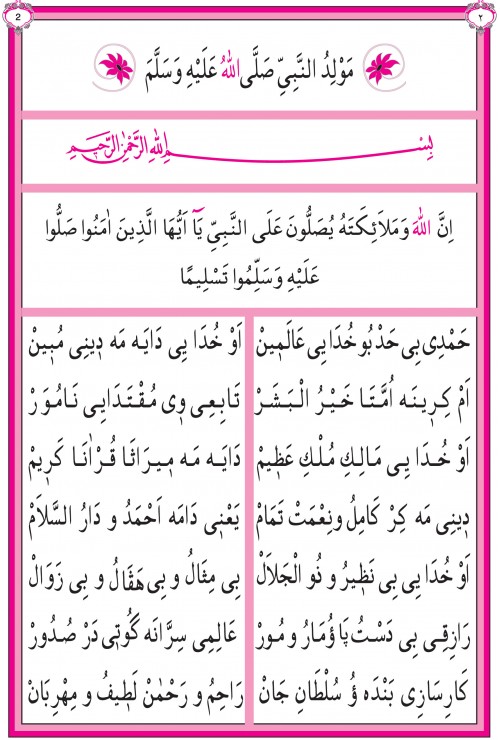 2
٢
مَوْلِدُ النَّبِيِّ صَلَّى اللهُ عَلَيْهِ وَسَلَّمَ
بِسْمِ اللهِ الرَّحْمٰنِ الرَّحِيمِ
اِنَّ اللهَ وَمَلَائِكَتَهُ يُصَلُّونَ عَلَى النَّبِيِّ يَآ اَيُّهَا الَّذِينَ اٰمَنُوا صَلُّوا
عَلَيْهِ وَسَلِّمُوا تَسْلِيمًا
حَمْدِى بِى حَدْ بُو خُدَايِى عَالَمِينْ اَوْ خُدَا يِى دَايَه مَه دِينِى مُبِينْ
اَمْ كِرِينَه اُمَّتَا خَيْرُ الْبَشَرْ تَابِعِى وِى مُقْتَدَايِى نَامُوَرْ
اَوْ خُدَا يِى مَالِكِ مُلْكِ عَظِيمْ دَايَه مَه مِيرَاثَا قُرْاٰنَا كَرِيمْ
دِينِى مَه كِرْ كَامِلُ و نِعْمَتْ تَمَامْ يَعْنِى دَامَه اَحْمَدُ و دَارُ السَّلَامْ
اَوْ خُدَا يِى بِى نَظِيرُ و ذُو الْجَلَالْ بِى مِثَالُ و بِى هَڤَالُ و بِى زَوَالْ
رَازِقِى بِى دَسْتُ پَا ؤُ مَارُ و مُورْ عَالِمِى سِرَّانَه گُوتِى دَرْ صُدُورْ
كَارِسَازِى بَنْدَه ؤُ سُلْطَانِ جَانْ رَاحِمُ و رَحْمٰنُ لَطِيفُ و مِهْرِبَانْ